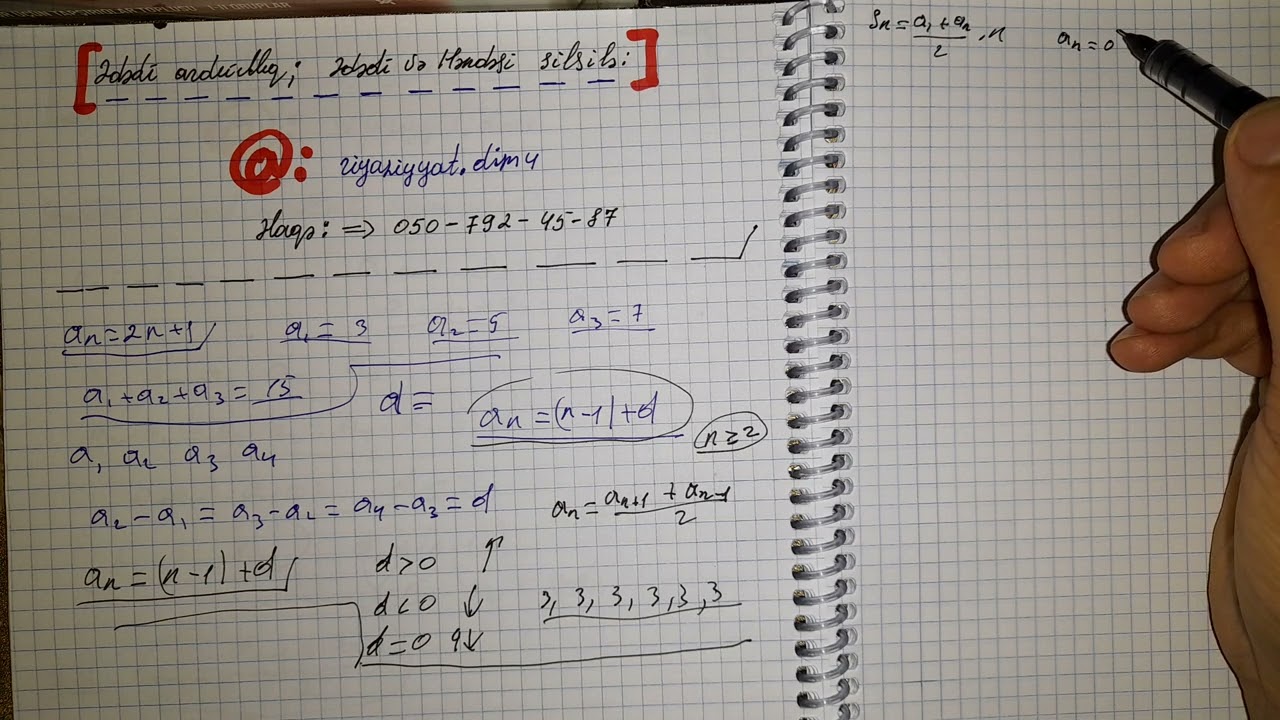 Ədədi ardıcıllıq; Ədədi və Həndəsi silsilə:
@: riyaziyyat.dim4
Əlaqə: => 050-792-45-87
aₙ=2n+1 a₁=3 a₂=5 a₃=7
a₁+a₂+a₃=15 d= aₙ=(n-1)+d n≥2
a₁ a₂ a₃ a₄
a₂-a₁=a₃-a₂=a₄-a₃=d aₙ=(aₙ₊₁+aₙ₋₁)/2
aₙ=(n-1)+d d>0 ↑
d<0 ↓ 3, 3, 3, 3, 3, 3
d=0
Sₙ=(a₁+aₙ)/2·n aₙ=0